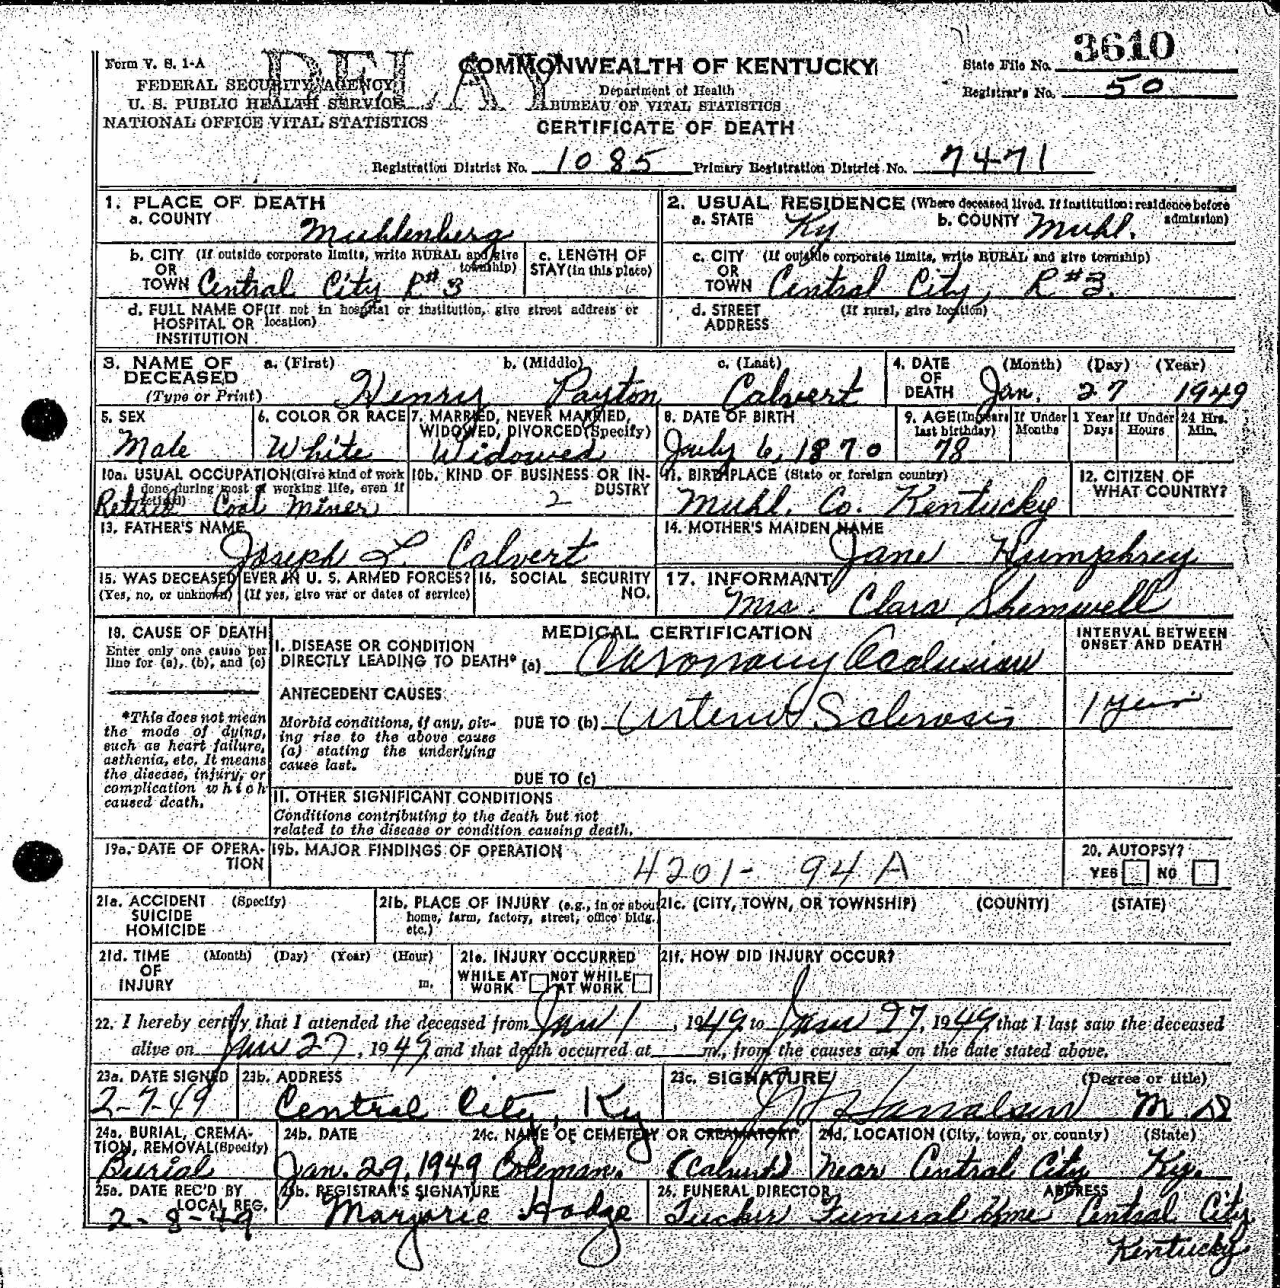 3610
DELAY
Form V. S. 1-A
COMMONWEALTH OF KENTUCKY
State File No.
FEDERAL SECURITY AGENCY
Department of Health
Registrar's No. 50
U. S. PUBLIC HEALTH SERVICE
BUREAU OF VITAL STATISTICS
NATIONAL OFFICE VITAL STATISTICS
CERTIFICATE OF DEATH
Registration District No. 1085 Primary Registration District No. 7471
1. PLACE OF DEATH
a. COUNTY Muhlenberg
2. USUAL RESIDENCE (Where deceased lived. If institution: residence before admission)
a. STATE Ky b. COUNTY Muhl.
b. CITY (If outside corporate limits, write RURAL and give township)
OR
TOWN Central City R#3
c. LENGTH OF
STAY (in this place)
c. CITY (If outside corporate limits, write RURAL and give township)
OR
TOWN Central City, R#3.
d. FULL NAME OF (If not in hospital or institution, give street address or location)
HOSPITAL OR
INSTITUTION
d. STREET (If rural, give location)
ADDRESS
3. NAME OF DECEASED
(Type or Print)
a. (First) b. (Middle) c. (Last)
Henry Payton Calvert
4. DATE OF DEATH
(Month) (Day) (Year)
Jan. 27 1949
5. SEX
Male
6. COLOR OR RACE
White
7. MARRIED, NEVER MARRIED,
WIDOWED, DIVORCED (Specify)
Widowed
8. DATE OF BIRTH
July 6, 1870
9. AGE (In years last birthday)
78
If Under 1 Year
Months Days
If Under 24 Hrs.
Hours Min.
10a. USUAL OCCUPATION (Give kind of work done during most of working life, even if retired)
Retired Coal Miner
10b. KIND OF BUSINESS OR INDUSTRY
2
11. BIRTHPLACE (State or foreign country)
Muhl. Co. Kentucky
12. CITIZEN OF
WHAT COUNTRY?
13. FATHER'S NAME
Joseph L. Calvert
14. MOTHER'S MAIDEN NAME
Jane Humphrey
15. WAS DECEASED EVER IN U. S. ARMED FORCES?
(Yes, no, or unknown) (If yes, give war or dates of service)
16. SOCIAL SECURITY
NO.
17. INFORMANT
Mrs. Clara Shemwell
18. CAUSE OF DEATH
Enter only one cause per
line for (a), (b), and (c)
*This does not mean
the mode of dying,
such as heart failure,
asthenia, etc. It means
the disease, injury, or
complication which
caused death.
MEDICAL CERTIFICATION
INTERVAL BETWEEN
ONSET AND DEATH
I. DISEASE OR CONDITION
DIRECTLY LEADING TO DEATH* (a) Coronary Occlusion
ANTECEDENT CAUSES
Morbid conditions, if any, giving rise to the above cause (a) stating the underlying cause last.
DUE TO (b) Arterio Sclerosis 1 year
DUE TO (c)
II. OTHER SIGNIFICANT CONDITIONS
Conditions contributing to the death but not
related to the disease or condition causing death.
19a. DATE OF OPERATION
19b. MAJOR FINDINGS OF OPERATION
4201- 94A
20. AUTOPSY?
YES NO
21a. ACCIDENT (Specify)
SUICIDE
HOMICIDE
21b. PLACE OF INJURY (e.g., in or about
home, farm, factory, street, office bldg.
etc.)
21c. (CITY, TOWN, OR TOWNSHIP) (COUNTY) (STATE)
21d. TIME (Month) (Day) (Year) (Hour)
OF
INJURY m.
21e. INJURY OCCURRED
WHILE AT WORK NOT WHILE AT WORK
21f. HOW DID INJURY OCCUR?
22. I hereby certify that I attended the deceased from Jan 1, 1949, to Jan 27, 1949, that I last saw the deceased
alive on Jan 27, 1949, and that death occurred at m., from the causes and on the date stated above.
23a. DATE SIGNED
2-7-49
23b. ADDRESS
Central City, Ky
23c. SIGNATURE (Degree or title)
M D
24a. BURIAL, CREMATION, REMOVAL (Specify)
Burial
24b. DATE
Jan. 29, 1949
24c. NAME OF CEMETERY OR CREMATORY
Coleman. (Calvert)
24d. LOCATION (City, town, or county) (State)
near Central City Ky.
25a. DATE REC'D BY
LOCAL REG.
2-8-49
25b. REGISTRAR'S SIGNATURE
Marjorie Hodge
26. FUNERAL DIRECTOR ADDRESS
Tucker Funeral Home Central City
Kentucky